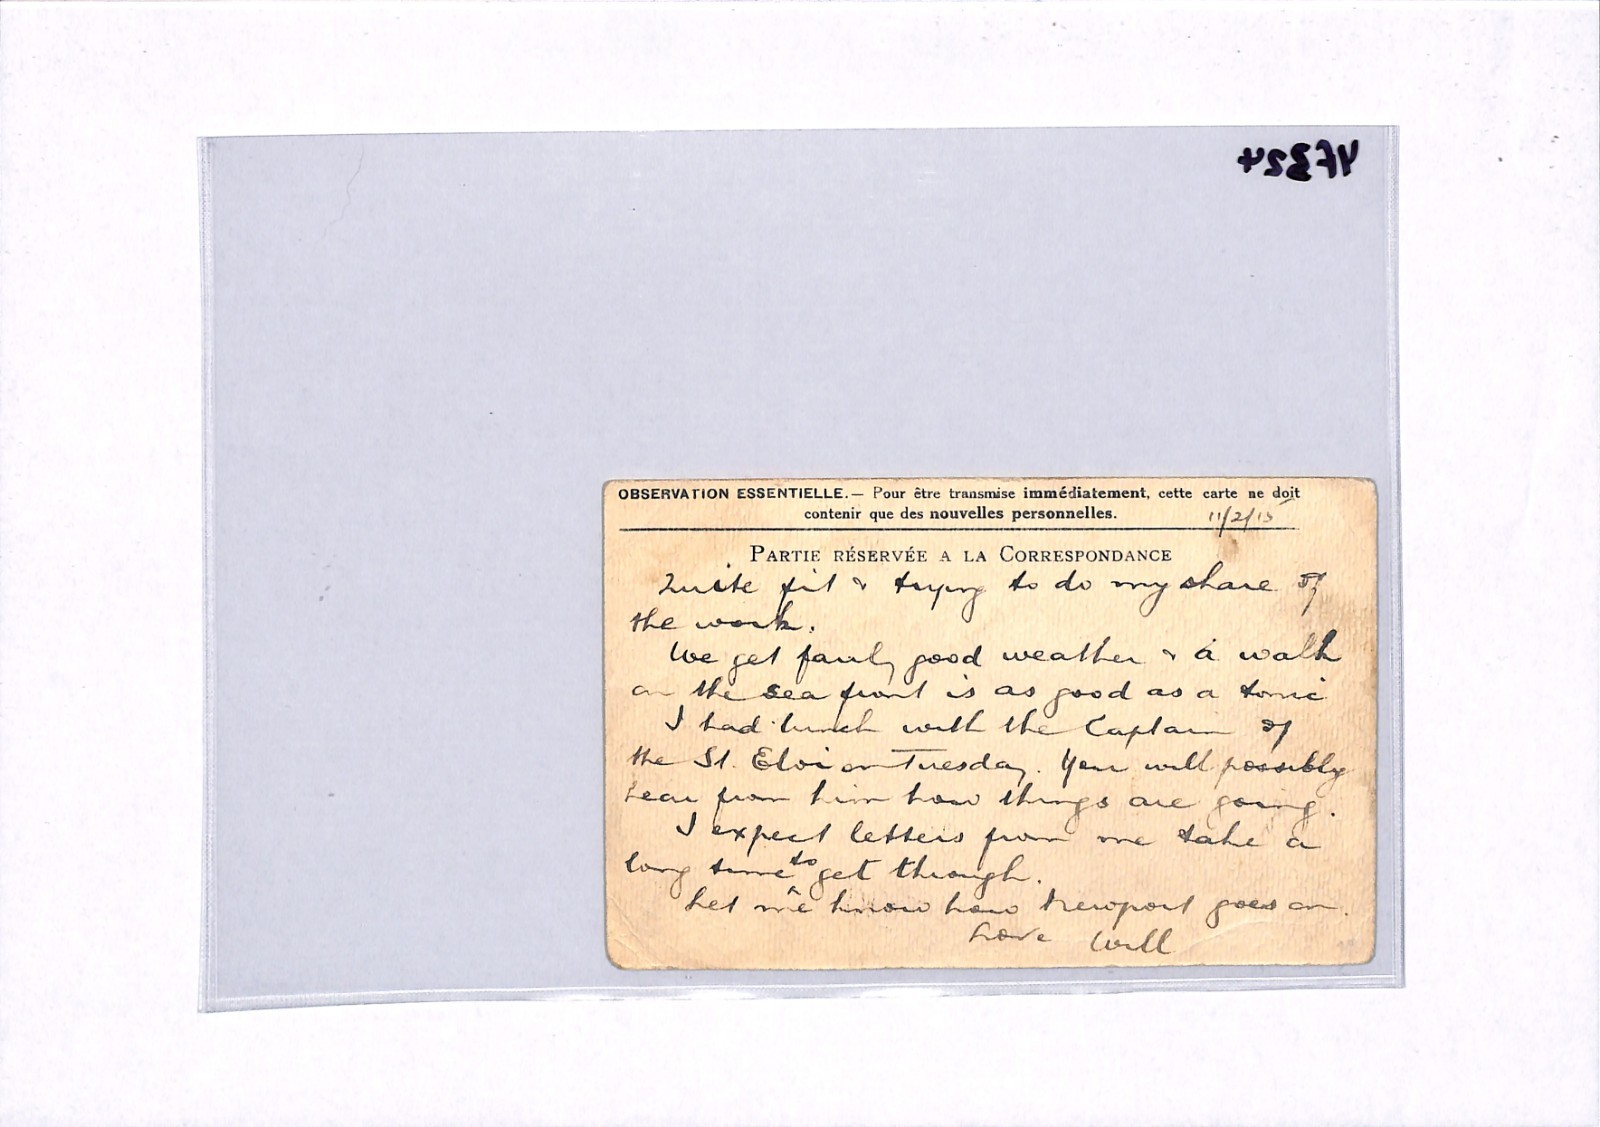 OBSERVATION ESSENTIELLE.— Pour être transmise immédiatement, cette carte ne doit
contenir que des nouvelles personnelles.
11/2/15
PARTIE RÉSERVÉE A LA CORRESPONDANCE
Quite fit & trying to do my share of
the work.
We get fairly good weather & a walk
on the sea front is as good as a tonic
I had lunch with the Captain of
the St. Eloi on Tuesday. You will possibly
hear from him how things are going.
I expect letters from me take a
long time to get through.
Let me know how Newport goes on.
Love Will